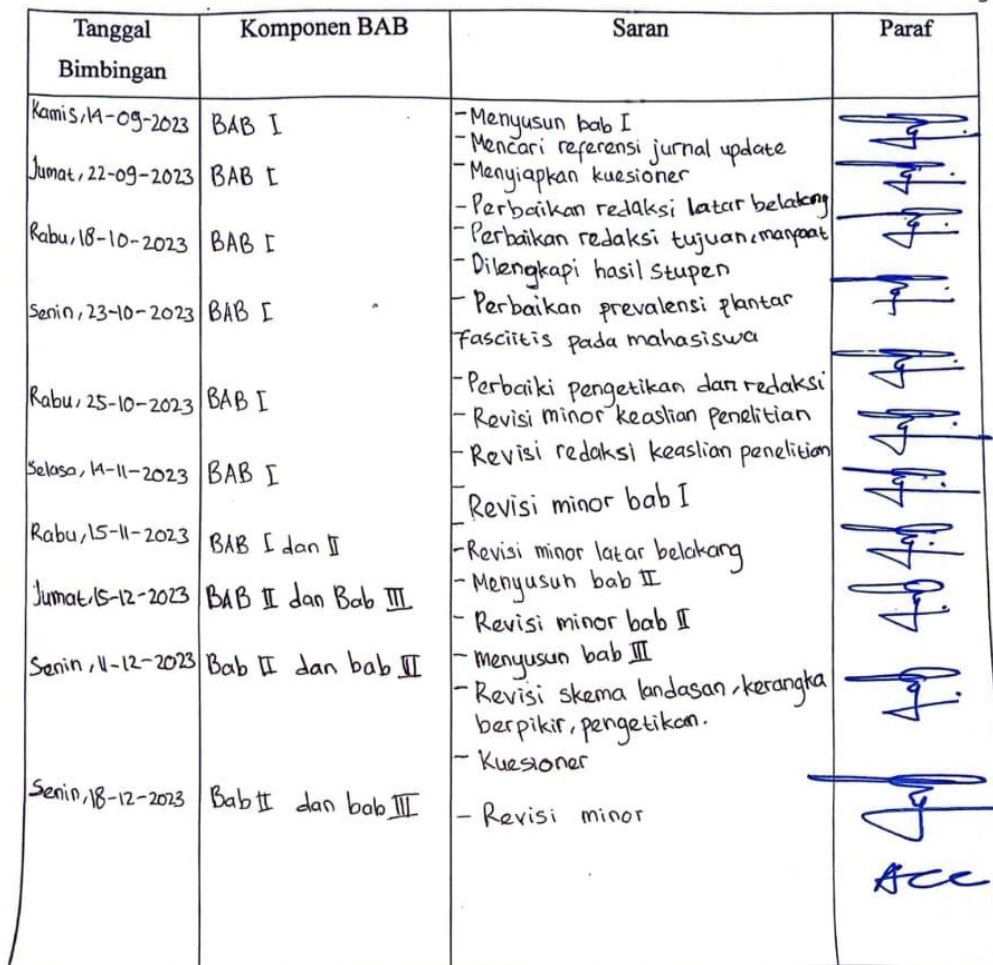 Tanggal Bimbingan Komponen BAB Saran Paraf
Kamis, 14-09-2023 BAB I - Menyusun bab I
- Mencari referensi jurnal update
Jumat, 22-09-2023 BAB I - Menyiapkan kuesioner
- Perbaikan redaksi latar belakang
Rabu, 18-10-2023 BAB I - Perbaikan redaksi tujuan, manfaat
- Dilengkapi hasil stupen
Senin, 23-10-2023 BAB I - Perbaikan prevalensi plantar
Fasciitis pada mahasiswa
Rabu, 25-10-2023 BAB I - Perbaiki pengetikan dan redaksi
- Revisi minor keaslian penelitian
Selasa, 14-11-2023 BAB I - Revisi redaksi keaslian penelitian
- Revisi minor bab I
Rabu, 15-11-2023 BAB I dan II - Revisi minor latar belakang
- Menyusun bab II
Jumat, 15-12-2023 BAB II dan Bab III - Revisi minor bab II
Senin, 11-12-2023 Bab II dan bab III - menyusun bab III
- Revisi skema landasan, kerangka
berpikir, pengetikan.
- Kuesioner
Senin, 18-12-2023 Bab II dan bab III - Revisi minor
ACC